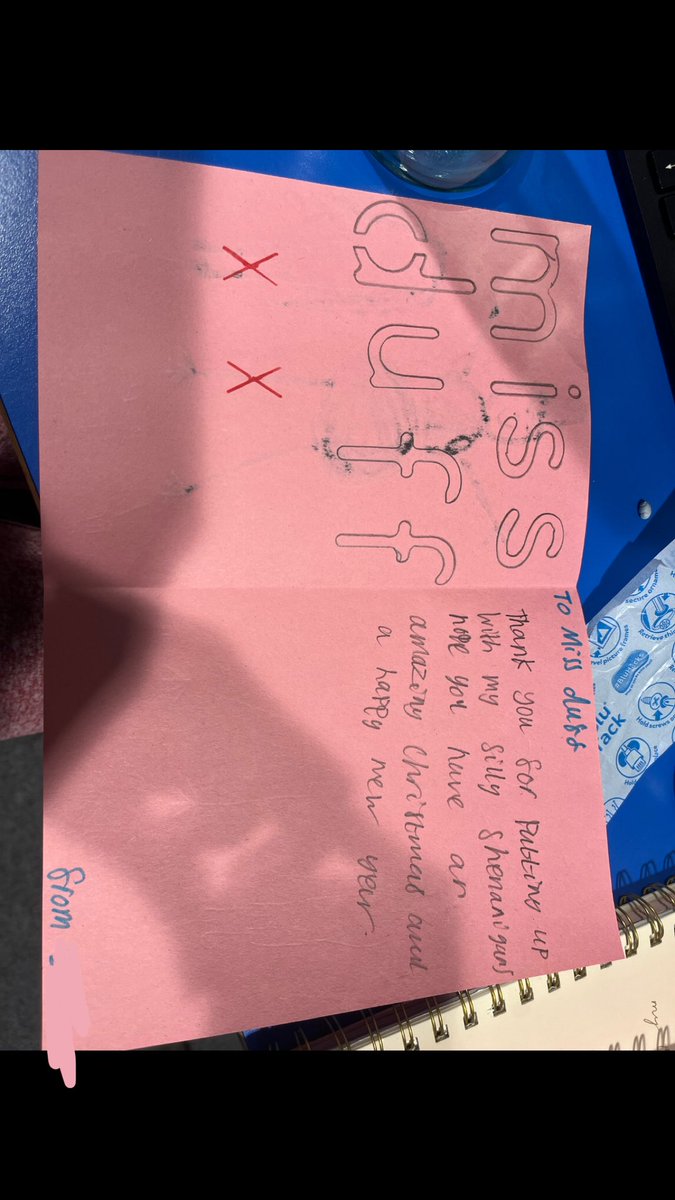 miss
duff
X X
To Miss duff
Thank you for putting up
with my silly shenanigans
hope you have an
amazing Christmas and
a happy new year
from -
secure ornam
Retrieve
picture frames
Hold screws
my